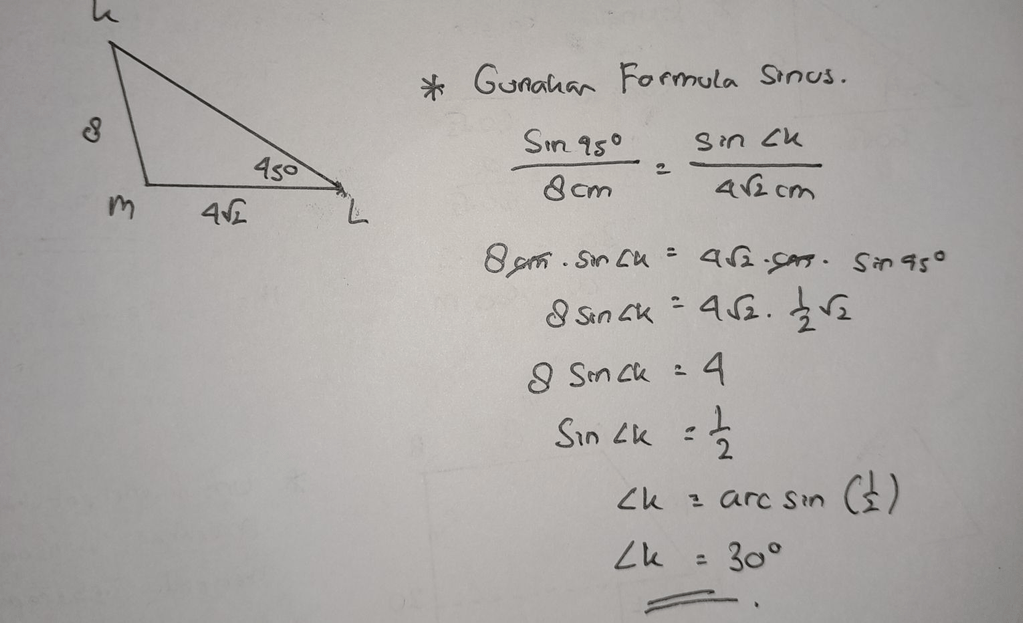 K
8
45°
M
4√2
L
* Gunakan Formula Sinus.
Sin 45° / 8 cm = sin ∠K / 4√2 cm
8 cm . sin ∠K = 4√2 . cm . sin 45°
8 sin ∠K = 4√2 . 1/2 √2
8 Sin ∠K = 4
Sin ∠K = 1/2
∠K = arc sin (1/2)
∠K = 30°